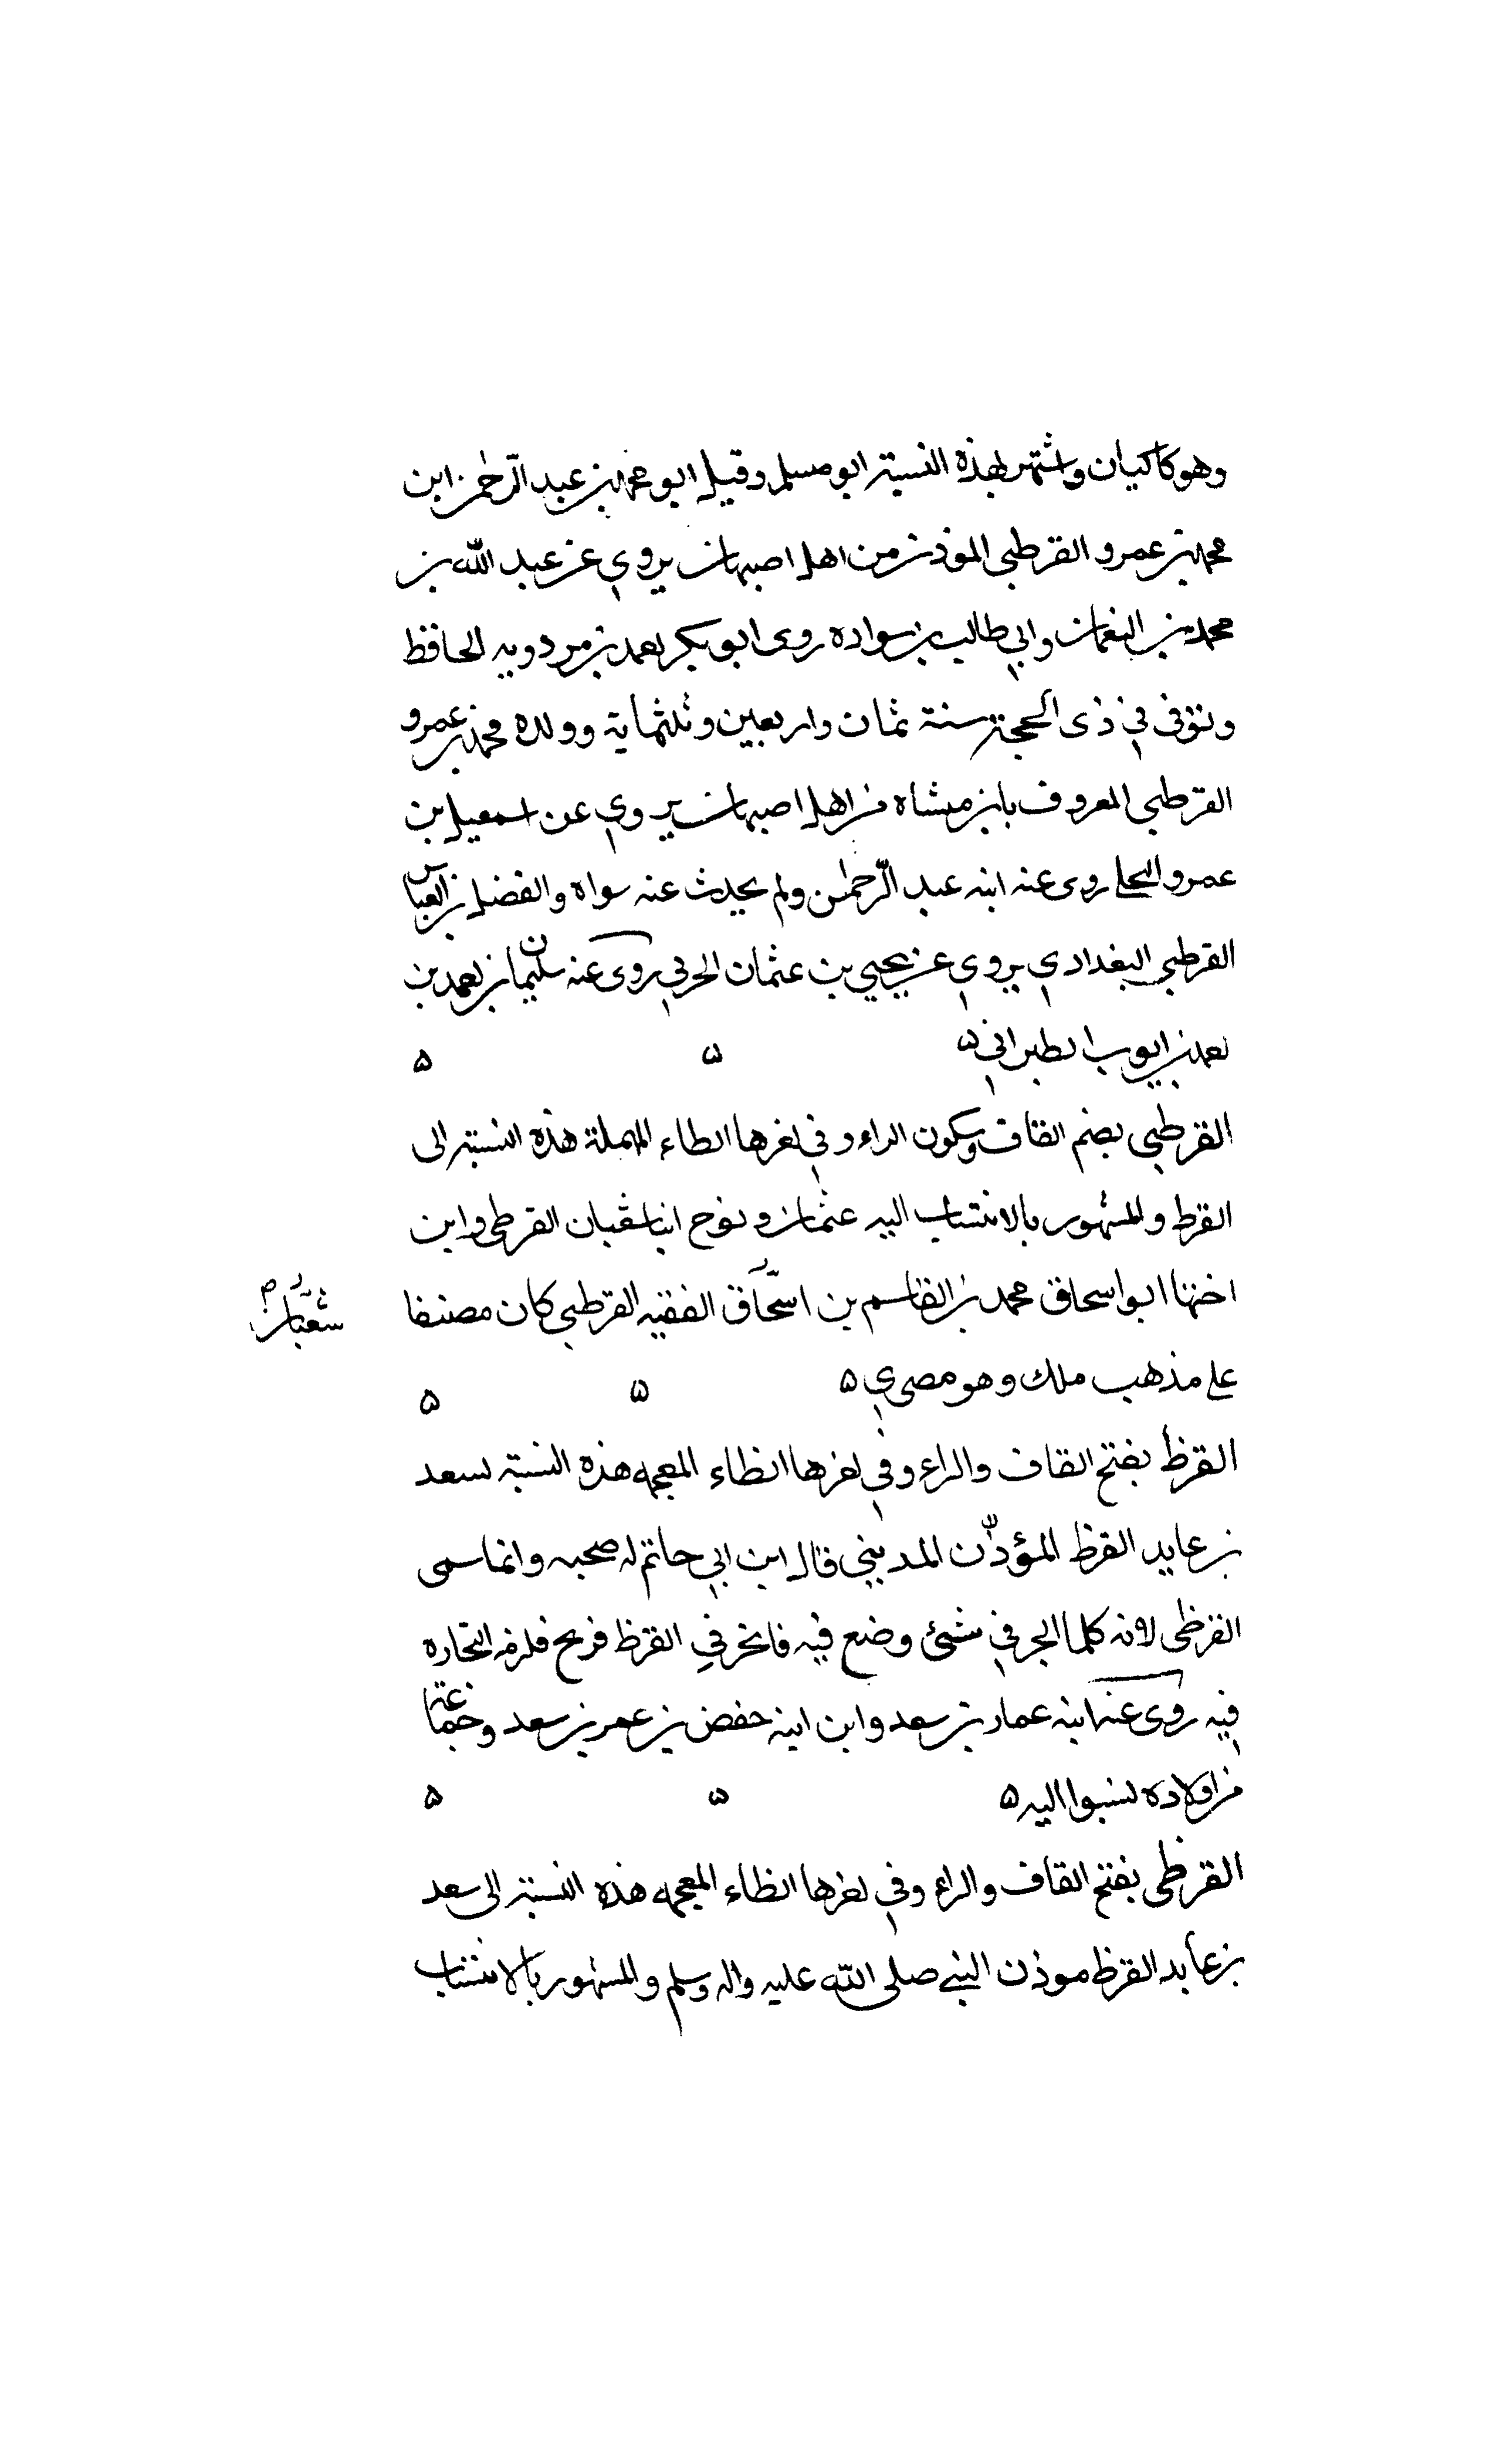 وهو كاكيان واشتهر بهذه النسبة ابو مسلم وقيل ابو محمد بن عبد الرحمن ابن
محمد بن عمرو القرطبي الموذن من اهل اصبهان يروي عن عبد الله بن
محمد بن النعمان وابي طالب بن سواده روى ابو بكر احمد بن مردويه الحافظ
وتوفى في ذى الحجة سنة ثمان واربعين وثلثماية وولده محمد بن عمرو
القرطبي المعروف بابن ميشاه من اهل اصبهان يروي عن اسمعيل بن
عمرو البجلي روى عنه ابنه عبد الرحمن ولم يحدث عنه سواه والفضل بن العباس
القرطبي البغدادي يروي عن يحيي بن عثمان الحربي روى عنه سليمان بن احمد بن
احمد بن ايوب الطبراني ۵ ۵ ۵
القرطبي بضم القاف وسكون الراء وفي اخرها الطاء المهملة هذه النسبة الى
القرط والمشهور بالانتساب اليه عثمان ونوح ابنا سفيان القرطي وابن
اختها ابو اسحاق محمد بن القاسم بن اسحاق الفقيه القرطبي كان مصنفا
شعبان
على مذهب ملك وهو مصري ۵ ۵ ۵
القرظ بفتح القاف والراء وفي اخرها الظاء المعجمه هذه النسبة لسعد
بن عايد القرظ المؤذن المديني قال ابن ابي حاتم له صحبه وانما سمى
القرظى لانه كلما اتجر في شئ وضع فيه فاتجر في القرظ فربح فلزم التجاره
فيه روى عنه ابنه عمار بن سعد وابن ابنه حفض بن عمر بن سعد وجماعة
من اولاده نسبوا اليه ۵ ۵ ۵
القرظى بفتح القاف والراء وفي اخرها الظاء المعجمه هذه النسبة الى سعد
بن عابد القرظ موذن النبي صلى الله عليه واله وسلم والمشهور بالانتساب